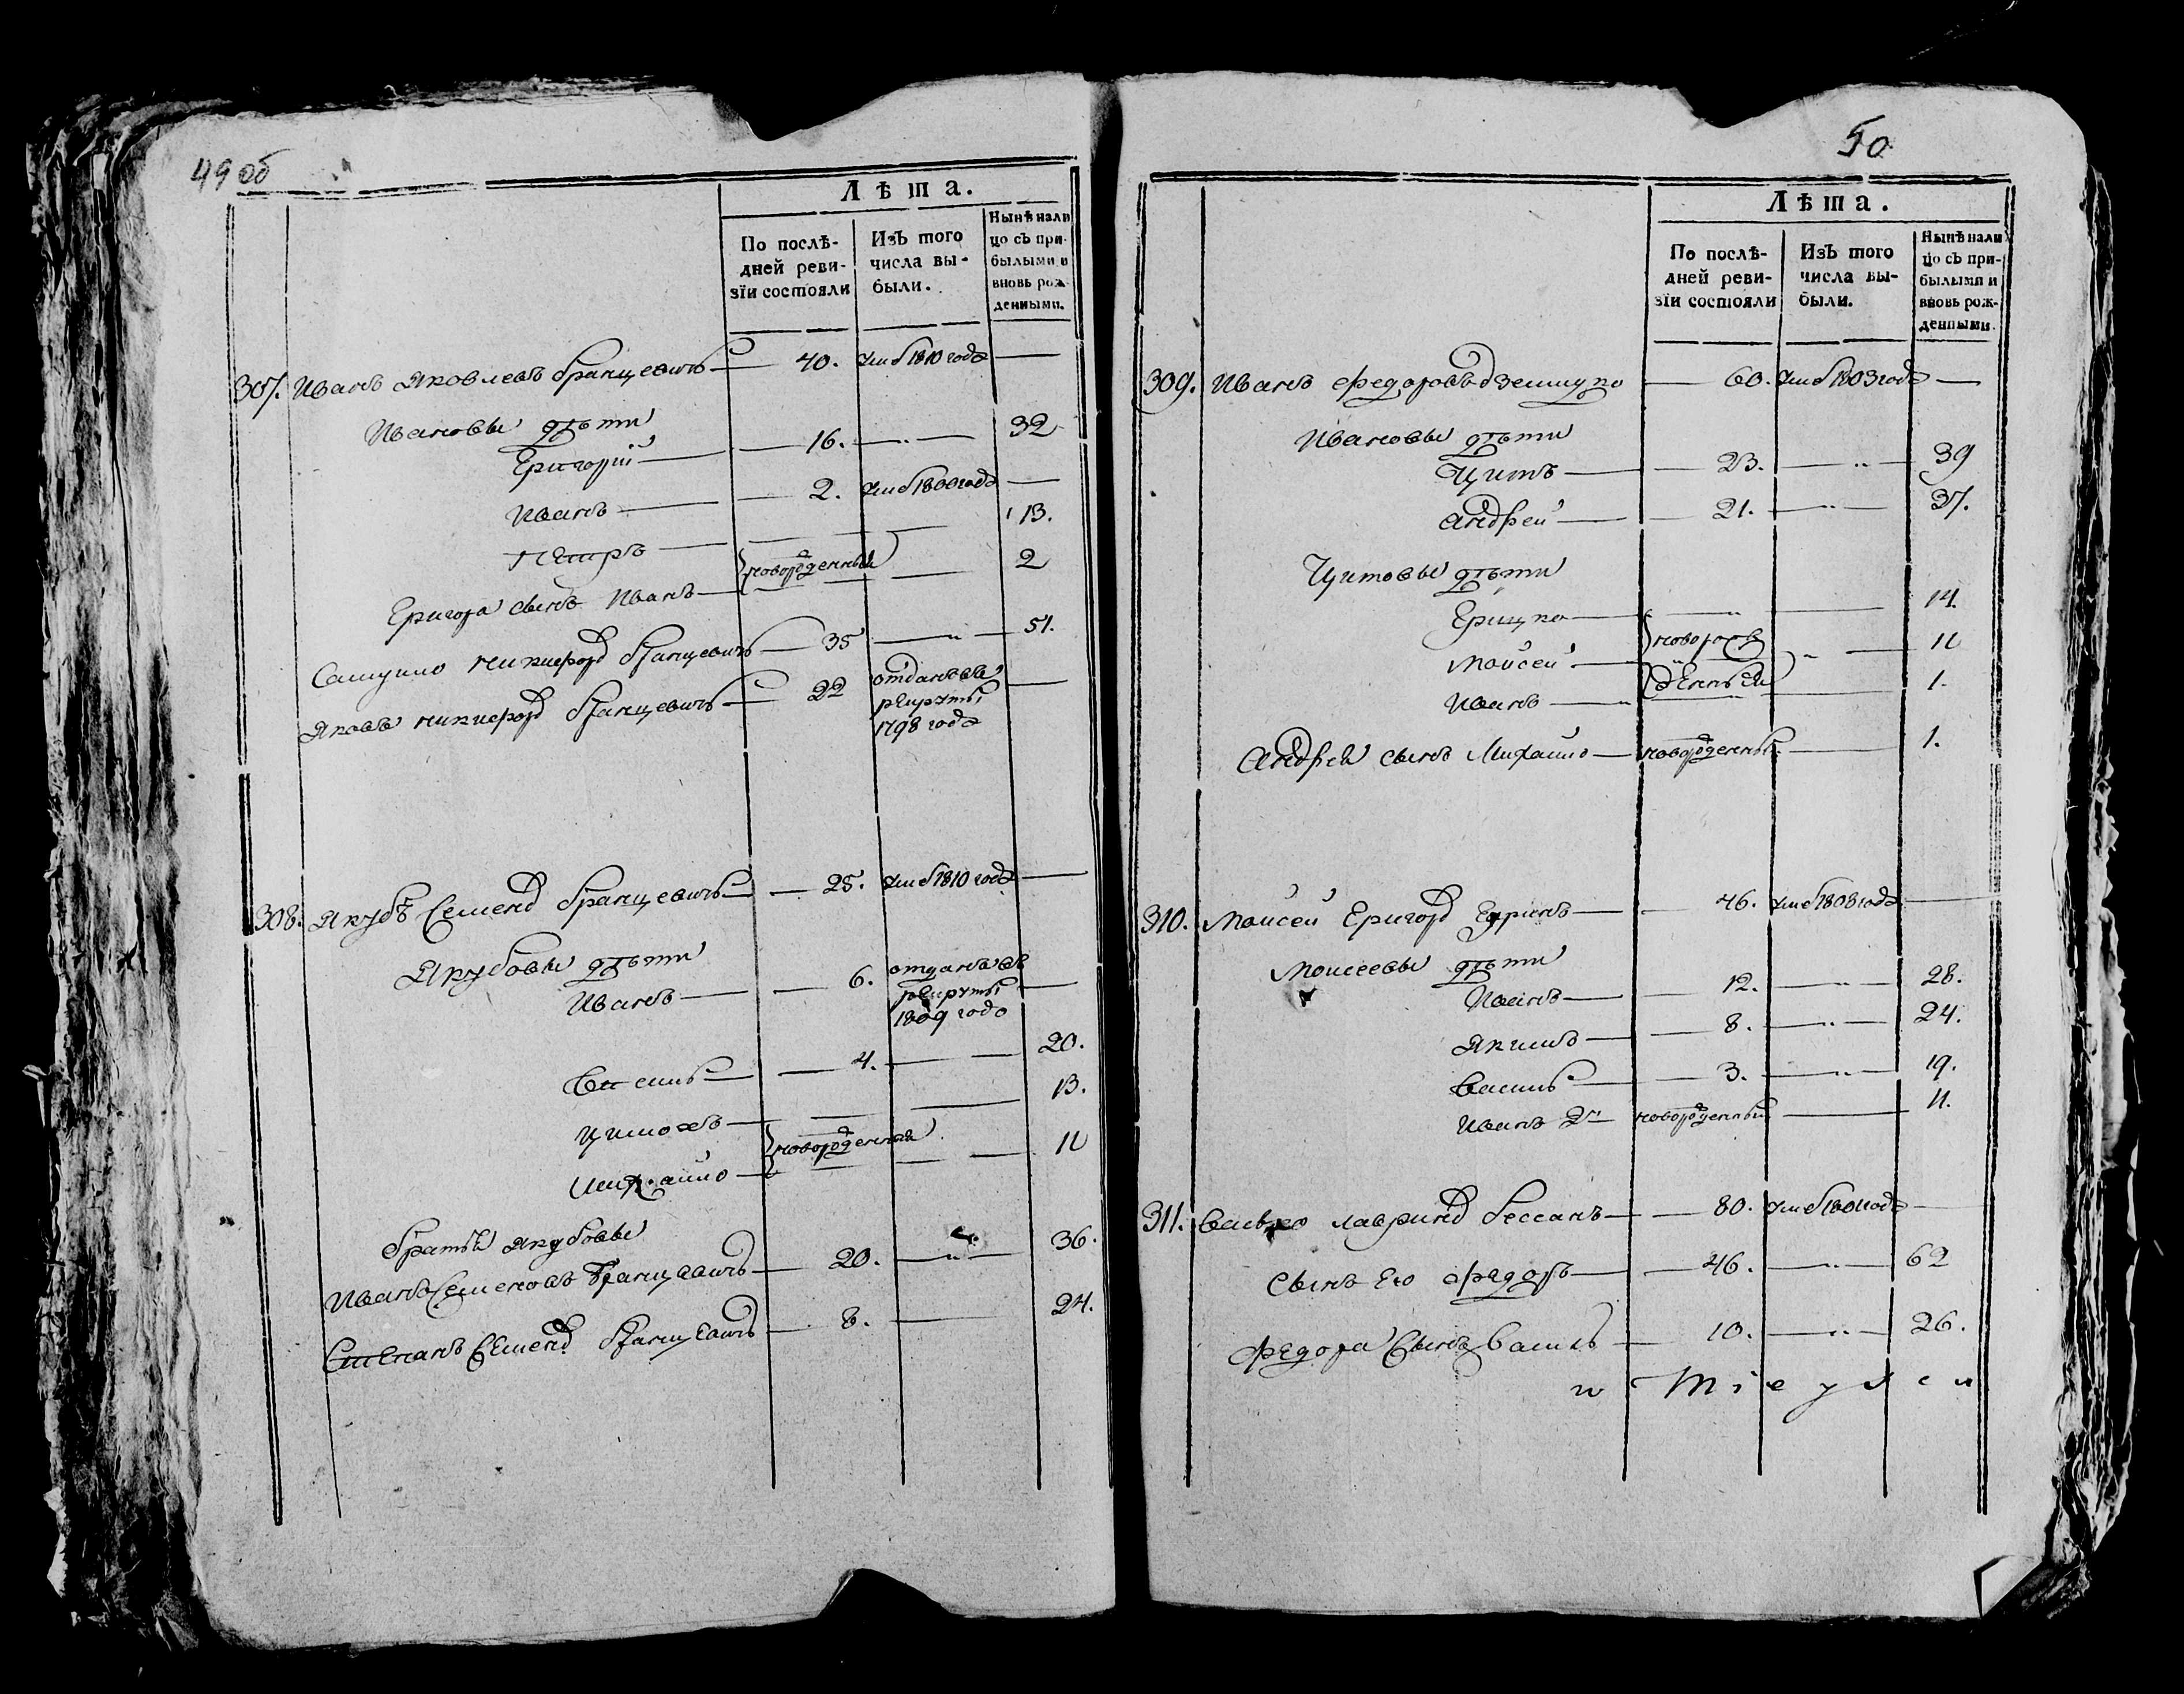 49 об
Лѣта.
По послѣ-
дней реви-
зїи состояли
Изъ того
числа вы-
были.
Нынѣ нали
цо съ при-
былыми и
вновь рож-
денными.
307. Иванъ Яковлевъ Францевичъ — 40. Умеб 1810 года —
Ивановы дѣти
Григорїй — 16. — " — 32
Иванъ — 2. Умеб 1800 года —
Петръ — 13.
новорожденныи
Григора сынъ Иванъ — 2
Самуило Никифоро Францевичъ — 35 — " — 51.
Яковъ Никифоро Францевичъ — 22 отданъ въ —
рекруты
1798 года
308. Якубъ Семено Францевичъ — 25. Умеб 1810 года —
Якубовы дѣти
Иванъ — 6. отданъ въ —
рекруты
1809 года
Василь — 4. — 20.
Цимохъ — 13.
новорожденныи
Михайло — 11
братья Якубовы
Иванъ Семеновъ Францевичъ — 20. — " — 36.
Степанъ Семено Францевичъ — 8. — 24.
50
Лѣта.
По послѣ-
дней реви-
зїи состояли
Изъ того
числа вы-
были.
Нынѣ нали
цо съ при-
былыми и
вновь рож-
денными.
309. Иванъ Федоровъ Дземидко — 60. Умеб 1803 года —
Ивановы дѣти
Цитъ — 23. — " — 39
Андрей — 21. — " — 37.
Цитовы дѣти
Грицко — " — 14.
новорож
Моисей — " — 11
деныи
Иванъ — " — 1.
Андрея сынъ Михайло — новорожденныи — 1.
310. Моисей Григоро — 46. Умеб 1808 года —
Моисеевы дѣти
Иванъ — 12. — " — 28.
Якимъ — 8. — " — 24.
Василь — 3. — " — 19.
Иванъ 2й новорожденныи — 11.
311. Лаврино — 80. Умеб года —
Сынъ Его Федоръ — 46. — " — 62
Федора Сынъ Василь — 10. — " — 26.